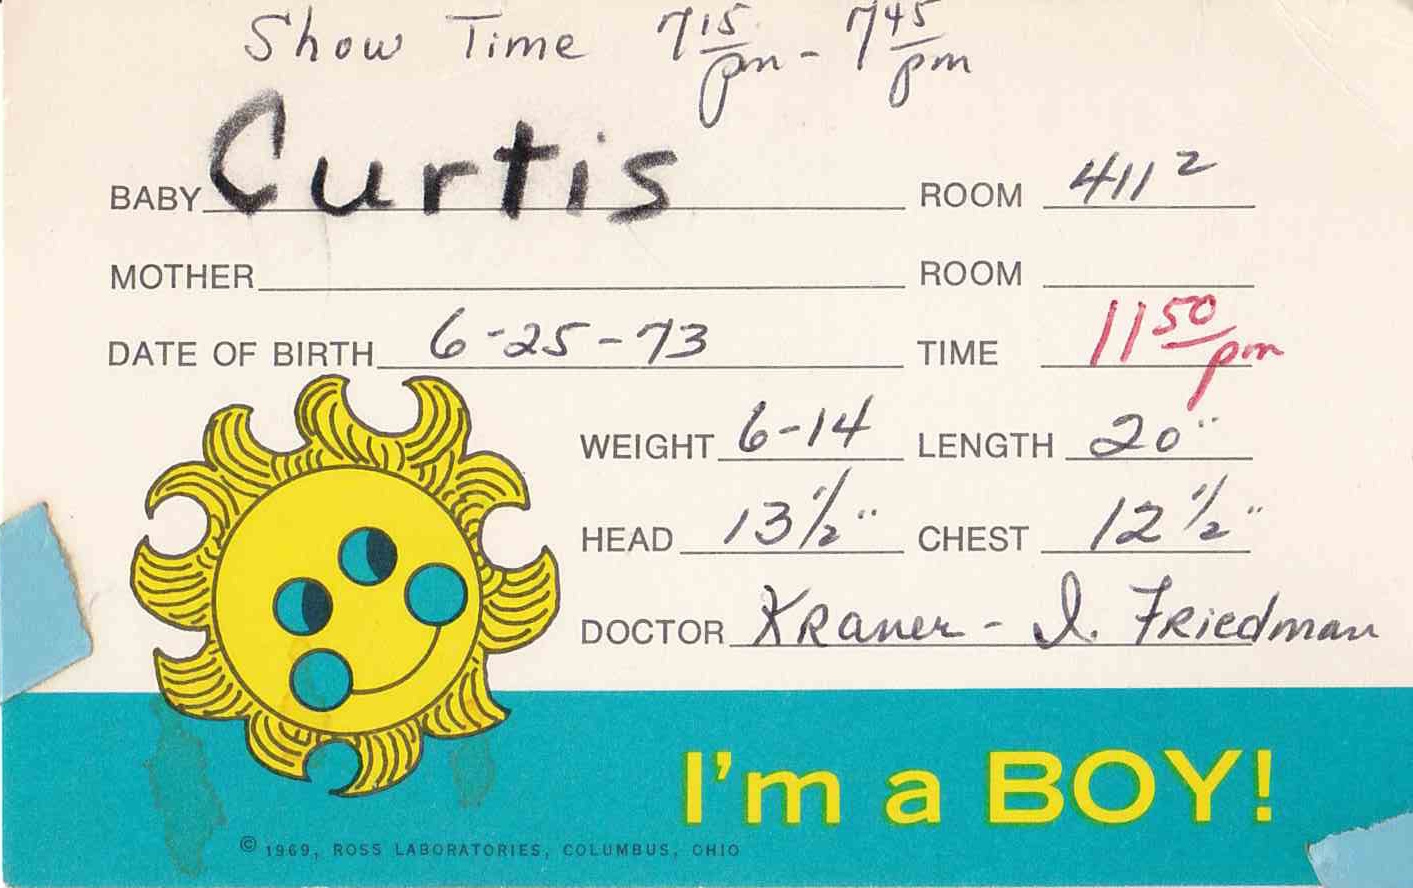 Show Time 7 15 pm - 7 45 pm
BABY Curtis ROOM 411 2
MOTHER ROOM
DATE OF BIRTH 6-25-73 TIME 11 50 pm
WEIGHT 6-14 LENGTH 20"
HEAD 13 1/2" CHEST 12 1/2"
DOCTOR Kraner - I. Friedman
I'm a BOY!
© 1969, ROSS LABORATORIES, COLUMBUS, OHIO